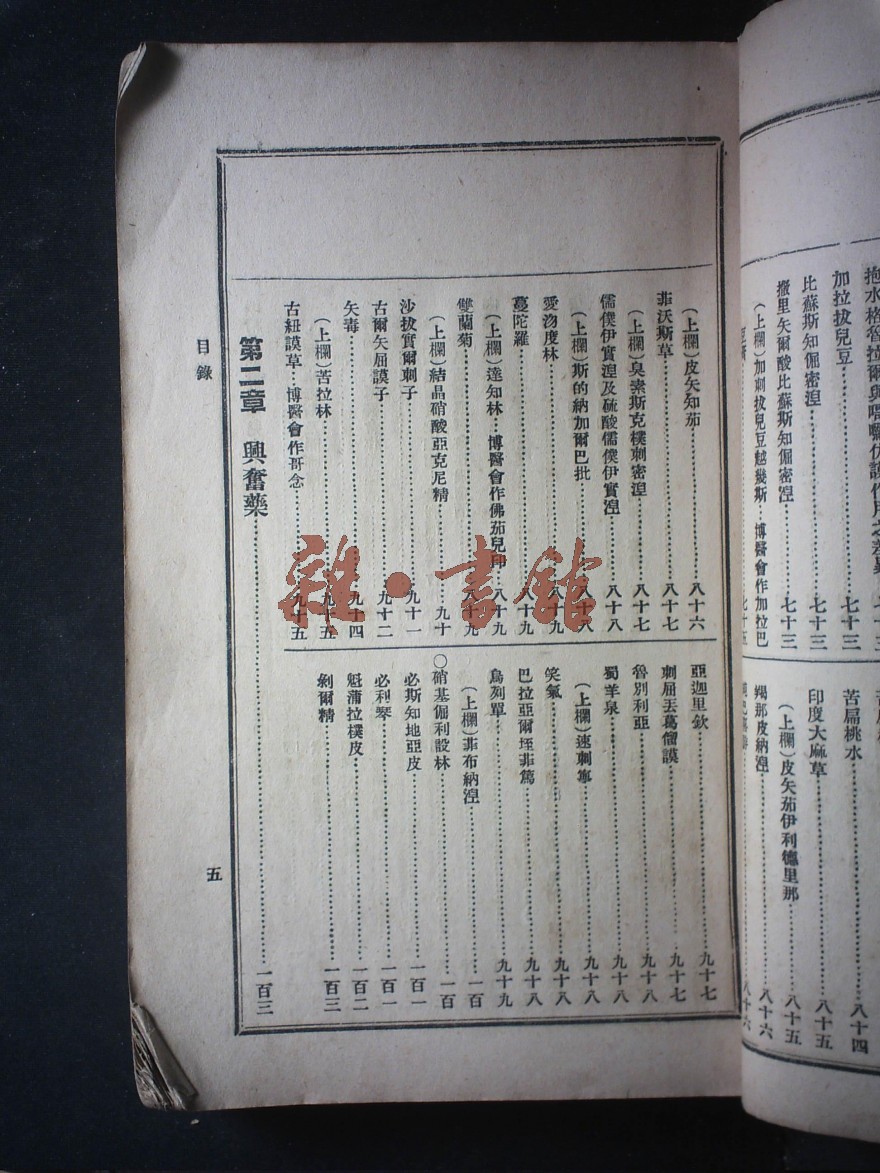 抱水格魯拉爾與嗎囉仿謨作用之差異
加拉拔兒豆……七十三
比蘇斯知倔密涅……七十三
撒里矢爾酸比蘇斯知倔密涅……七十三
(上欄)加刺拔兒豆越幾斯 博醫會作加拉巴……七十五
苦扁桃水……八十四
印度大麻草……八十五
(上欄)皮矢茄伊利德里那……八十五
賜那皮納涅……八十六
八十六
(上欄)皮矢知茄……八十六
菲沃斯草……八十七
(上欄)臭素斯克樸刺密涅……八十七
儒僕伊實涅及硫酸儒僕伊實涅……八十八
(上欄)斯的納加爾巴批……八十八
愛沕度林……八十九
蔓陀羅……八十九
(上欄)達知林…博醫會作佛茄兒印……八十九
雙蘭菊……八十九
(上欄)結晶硝酸亞克尼精……九十
沙拔實爾刺子……九十一
古爾矢屈謨子……九十二
矢毒……九十四
(上欄)苦拉林……九十五
古紐謨草…博醫會作哥念……九十五
亞迦里欽……九十七
刺屈丟葛僧謨……九十七
魯別利亞……九十八
蜀羊泉……九十八
(上欄)速刺寧……九十八
笑氣……九十八
巴拉亞爾垤非篤……九十八
烏列單……九十九
(上欄)菲布納涅……一百
○硝基傴利設林……一百
必斯知地亞皮……一百一
必利琴……一百一
魁蒲拉樸皮……一百二
剝爾精……一百三
第二章 興奮藥……一百三
目錄
五
雜·書館